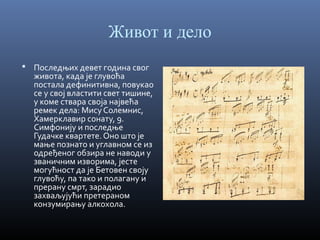 Живот и дело
• Последњих девет година свог
живота, када је глувоћа
постала дефинитивна, повукао
се у свој властити свет тишине,
у коме ствара своја највећа
ремек дела: Мису Солемнис,
Хамерклавир сонату, 9.
Симфонију и последње
Гудачке квартете. Оно што је
мање познато и углавном се из
одређеног обзира не наводи у
званичним изворима, јесте
могућност да је Бетовен своју
глувоћу, па тако и полагану и
прерану смрт, зарадио
захваљујући претераном
конзумирању алкохола.